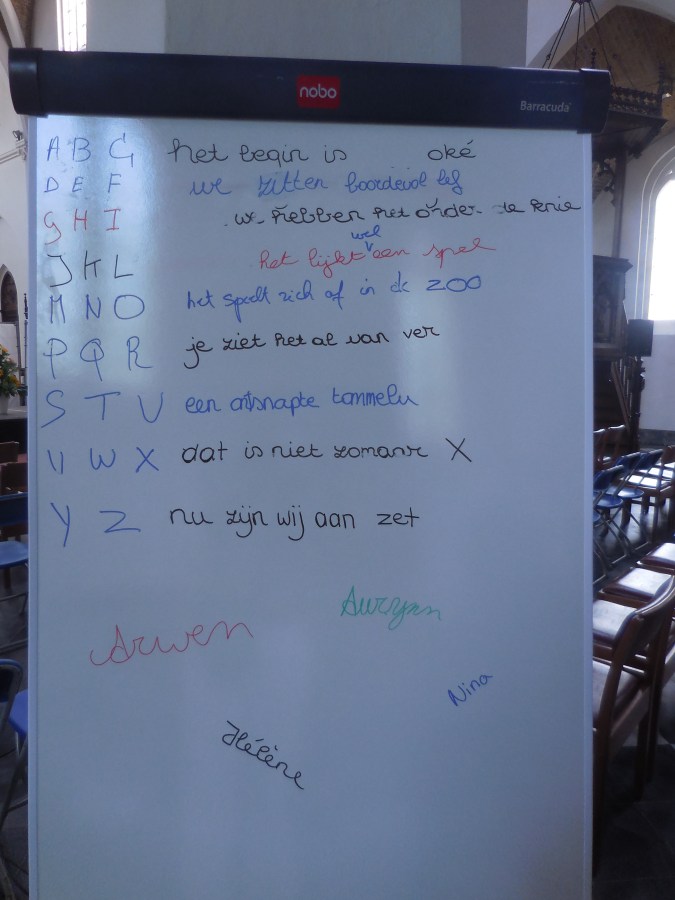 nobo
Barracuda
A B C het begin is oké
D E F we zitten boordevol lef
G H I w hebben het onder de knie
wel
het lijkt een spel
J K L
M N O het speelt zich af in de ZOO
P Q R je ziet het al van ver
S T U een ontsnapte
V W X dat is niet zomaar X
Y Z nu zijn wij aan zet
Arwen
Nina
Hélène